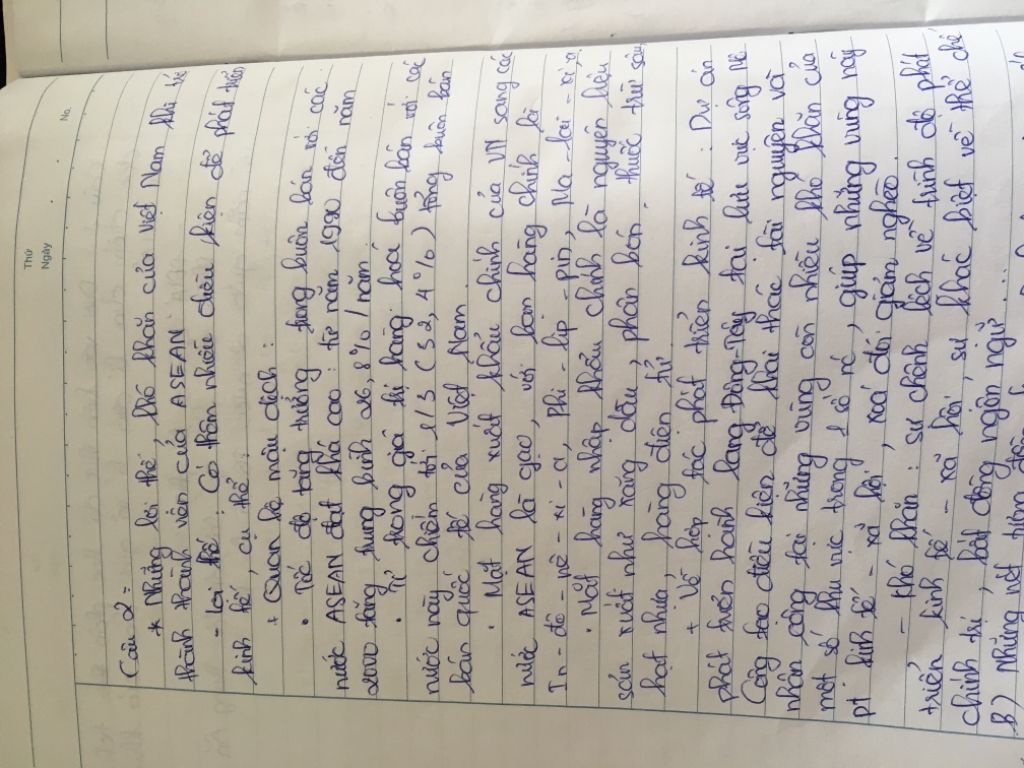 Thứ
Ngày
No.
Câu 2:
* Những lợi thế, khó khăn của việt Nam khi trở
thành thành vên của ASEAN
- lợi thế: Có thêm nhiều điều kiện để phát triển
kinh tế, cụ thể
+ Quan hệ mậu dịch:
• Tốc độ tăng trưởng trong buôn bán với các
nước ASEAN đạt khá cao: từ năm 1990 đến năm
2000 tăng trung bình 26,8% / năm
• Tỉ trọng giá trị hàng hoá buôn bán với các
nước này chiếm tới 1/3 (32,4%) tổng buôn bán
bán quốc tế của Việt Nam.
• Mặt hàng xuất khẩu chính của VN sang các
nước ASEAN là gạo, với bạn hàng chính là
In-đô-nê-xi-a, Phi-lip-pin, Ma-lai-xi-a
• Mặt hàng nhập khẩu chính là nguyên liệu
sản xuất như xăng dầu, phân bón, thuốc trừ sâu,
hạt nhựa, hàng điện tử
+ Về hợp tác phát triển kinh tế: Dự án
phát triển hành lang Đông-Tây tại lưu vực sông Mê
Công tạo điều kiện để khai thác tài nguyên và
nhân công tại những vùng còn nhiều khó khăn của
một số khu vực trong 1 số nc, giúp những vùng này
pt kinh tế - xã hội, xoá đói giảm nghèo.
- khó khăn: sự chênh lệch về trình độ phát
triển kinh tế - xã hội, sự khác biệt về thể chế
chính trị, bất đồng ngôn ngữ...
B) Những nét tương đồng